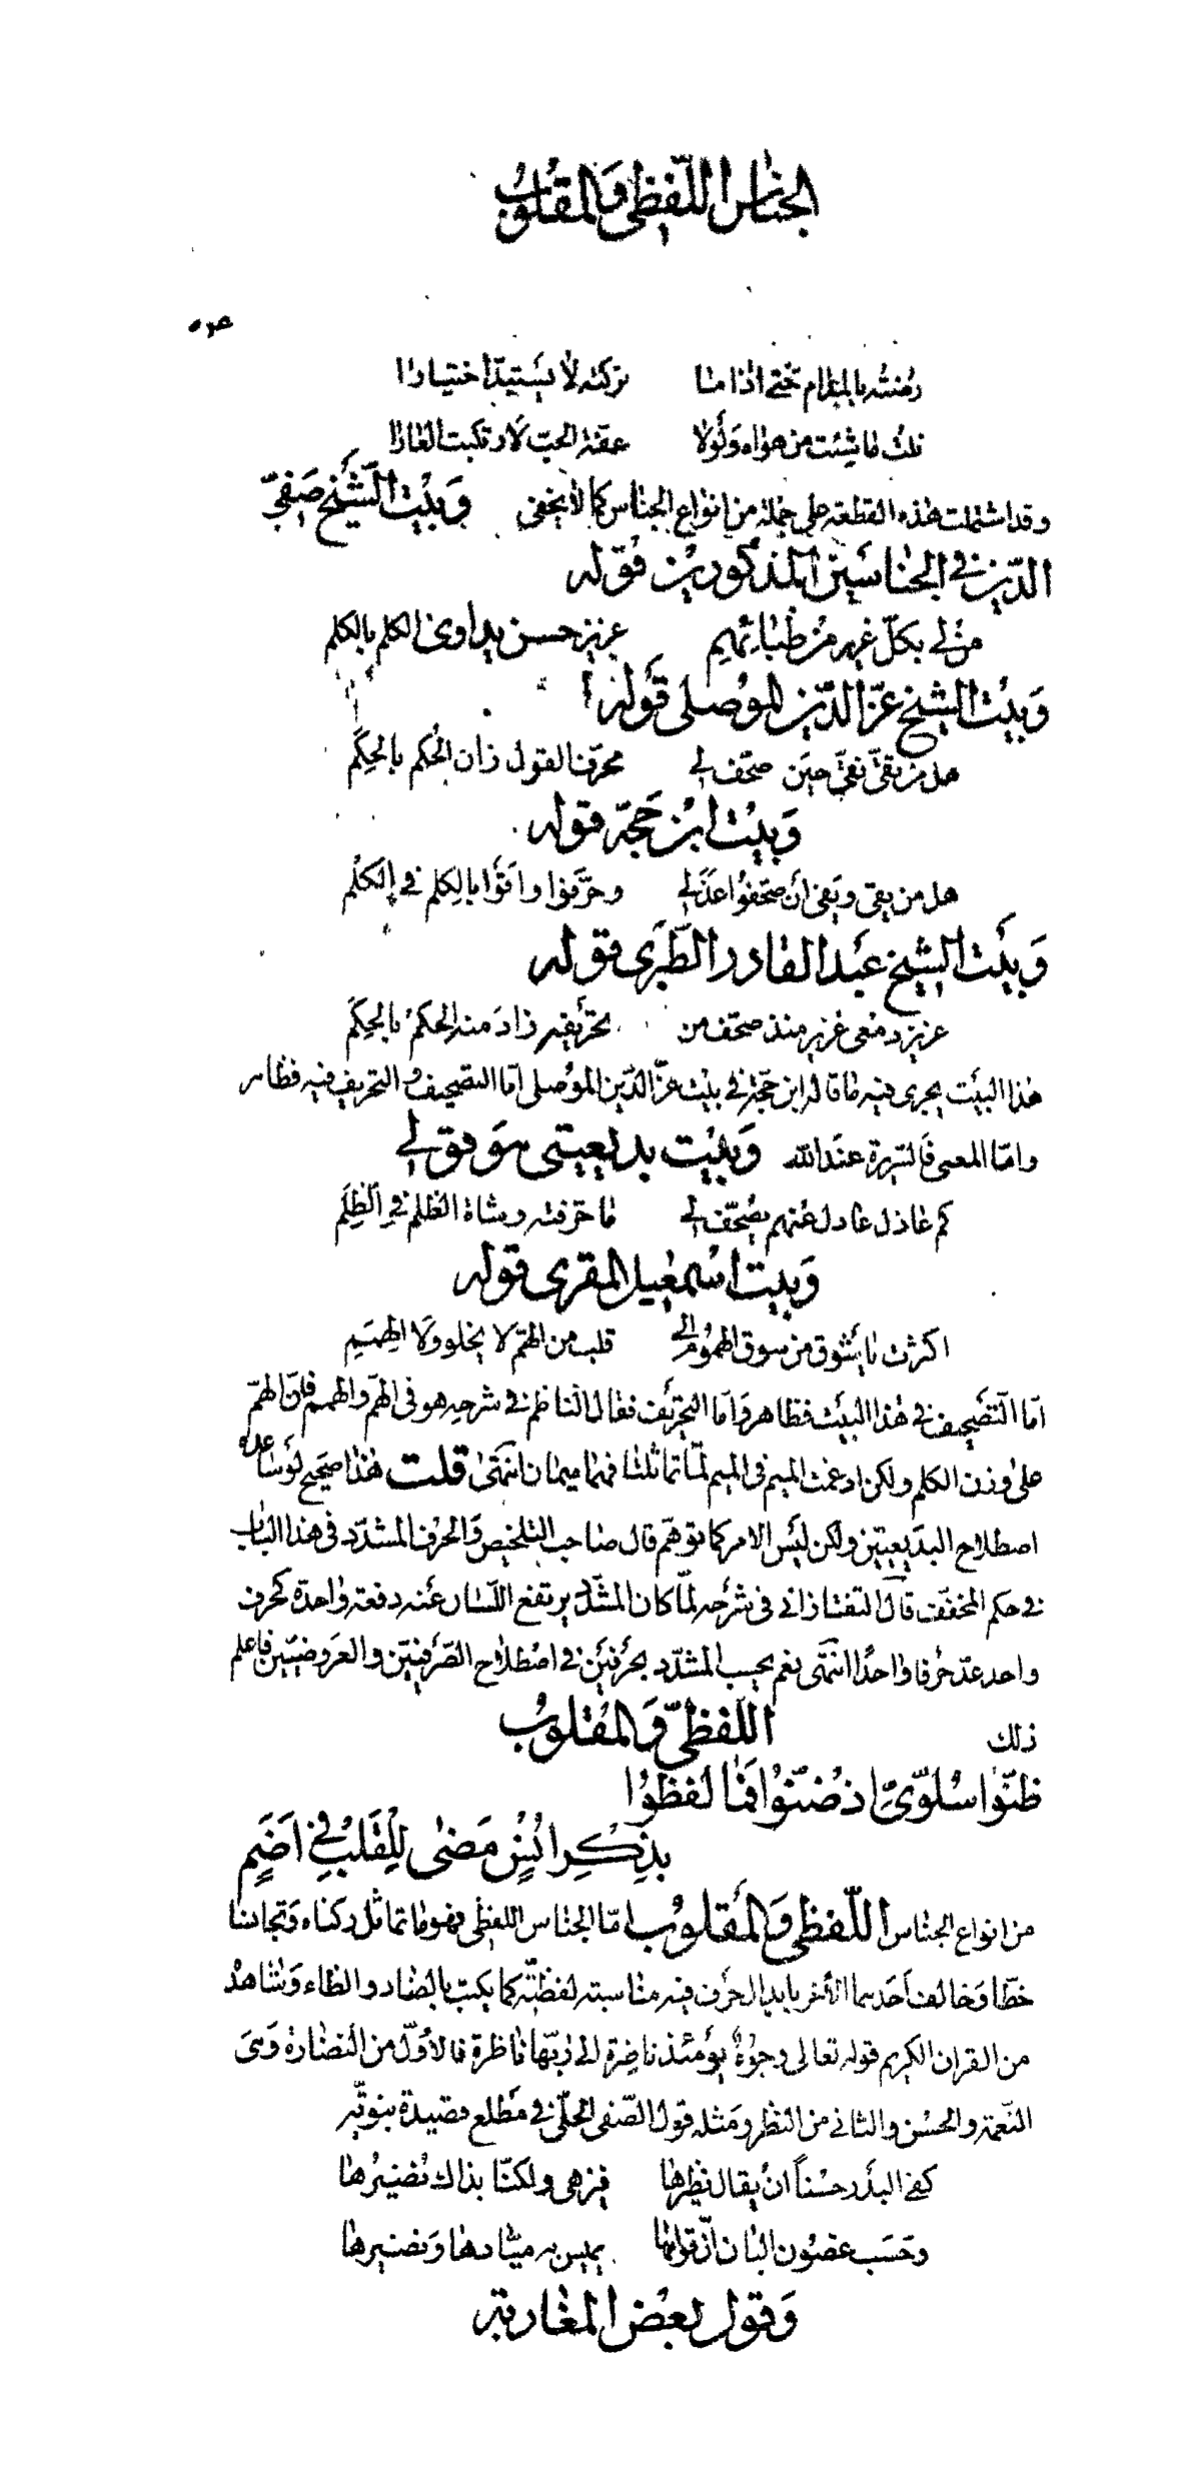 الجناس اللفظى والمقلوب
رضته بالمدام حتى اذا ما تركته لا يستبد اختيارا
نلت ما شئت من هواه ولولا عفة الحب لارتكبت العارا
وقد اشتملت هذه القطعة على جملة من انواع الجناس كما لا يخفى وبيت الشيخ صفىّ
الدّين فى الجناسين المذكورين قوله
من لى بكلّ غرير من ظبائهم عزيز حسن يداوى الكلم بالكلم
وبيت الشيخ عزّ الدّين الموصلى قوله
هل من تقىّ نفىّ حين صحّف لى محرّف القول زان الحكم بالحِكَم
وبيت ابن حجّة قوله
هل من يقى ويفى ان صحّفوا عذلى وحرّفوا واتوا بالكلم فى الكلم
وبيت الشيخ عبد القادر الطّبرى قوله
عزيز دمعى غزير منذ صحّف من تحريفه زاد منه الحكم بالحِكَم
هذا البيت يجرى فيه ما قاله ابن حجّة فى بيت عزّ الدّين الموصلى امّا التصحيف والتحريف فيه فظاهر
وامّا المعنى فالسريرة عند الله وبيت بديعيتى هو قولى
كم عاذل عادل عنهم يصحّف لى ما حرّفته وشاة الظلم فى الظلم
وبيت اسمعيل المقرى قوله
اكثرت يا شوق من سوق الهموم الى قلب من الهمّ لا يخلو ولا الهمم
امّا التّصحيف فى هذا البيت فظاهر وامّا التحريف فقال الناظم فى شرحه هو فى الهمّ والهمم فانّ الهمّ
على وزن الكلم ولكن ادغمت الميم فى الميم لمّا تماثلتا فهما ميمان انتهى قلت هذا صحيح لو ساعده
اصطلاح البديعيّين ولكن ليس الامر كما توهّم قال صاحب التلخيص والحرف المشدّد فى هذا الباب
فى حكم المخفّف قال التفتازانى فى شرحه لمّا كان المشدّد يرتفع اللسان عنه دفعة واحدة كحرف
واحد عدّ حرفا واحدًا انتهى نعم يحسب المشدّد بحرفين فى اصطلاح الصّرفيّين والعروضيّين فاعلم
ذلك اللفظىّ والمقلوب
ظنّوا سلوّى اذ ضنّوا فما لفظوا
بذكر انسٍ مضى للقلب فى اضم
من انواع الجناس اللّفظى والمقلوب امّا الجناس اللفظى فهو ما تماثل ركناه وتجانسا
خطّا وخالف احدهما الآخر بابدال حرف فيه مناسبة لفظيّة كما يكتب بالضاد والظاء وشاهده
من القران الكريم قوله تعالى وجوه يومئذ ناضرة الى ربّها ناظرة فالاوّل من النضارة وهى
النّعمة والحسن والثانى من النظر ومثله قول الصّفى الحلّى فى مطلع قصيدة نبويّة
كفى البدر حسناً ان يقال نظيرها فيزهى ولكنّا بذاك نضيرها
وحسب غصون البان انّ قوامها يميس به ميّادها ونضيرها
وقول بعض المغاربة